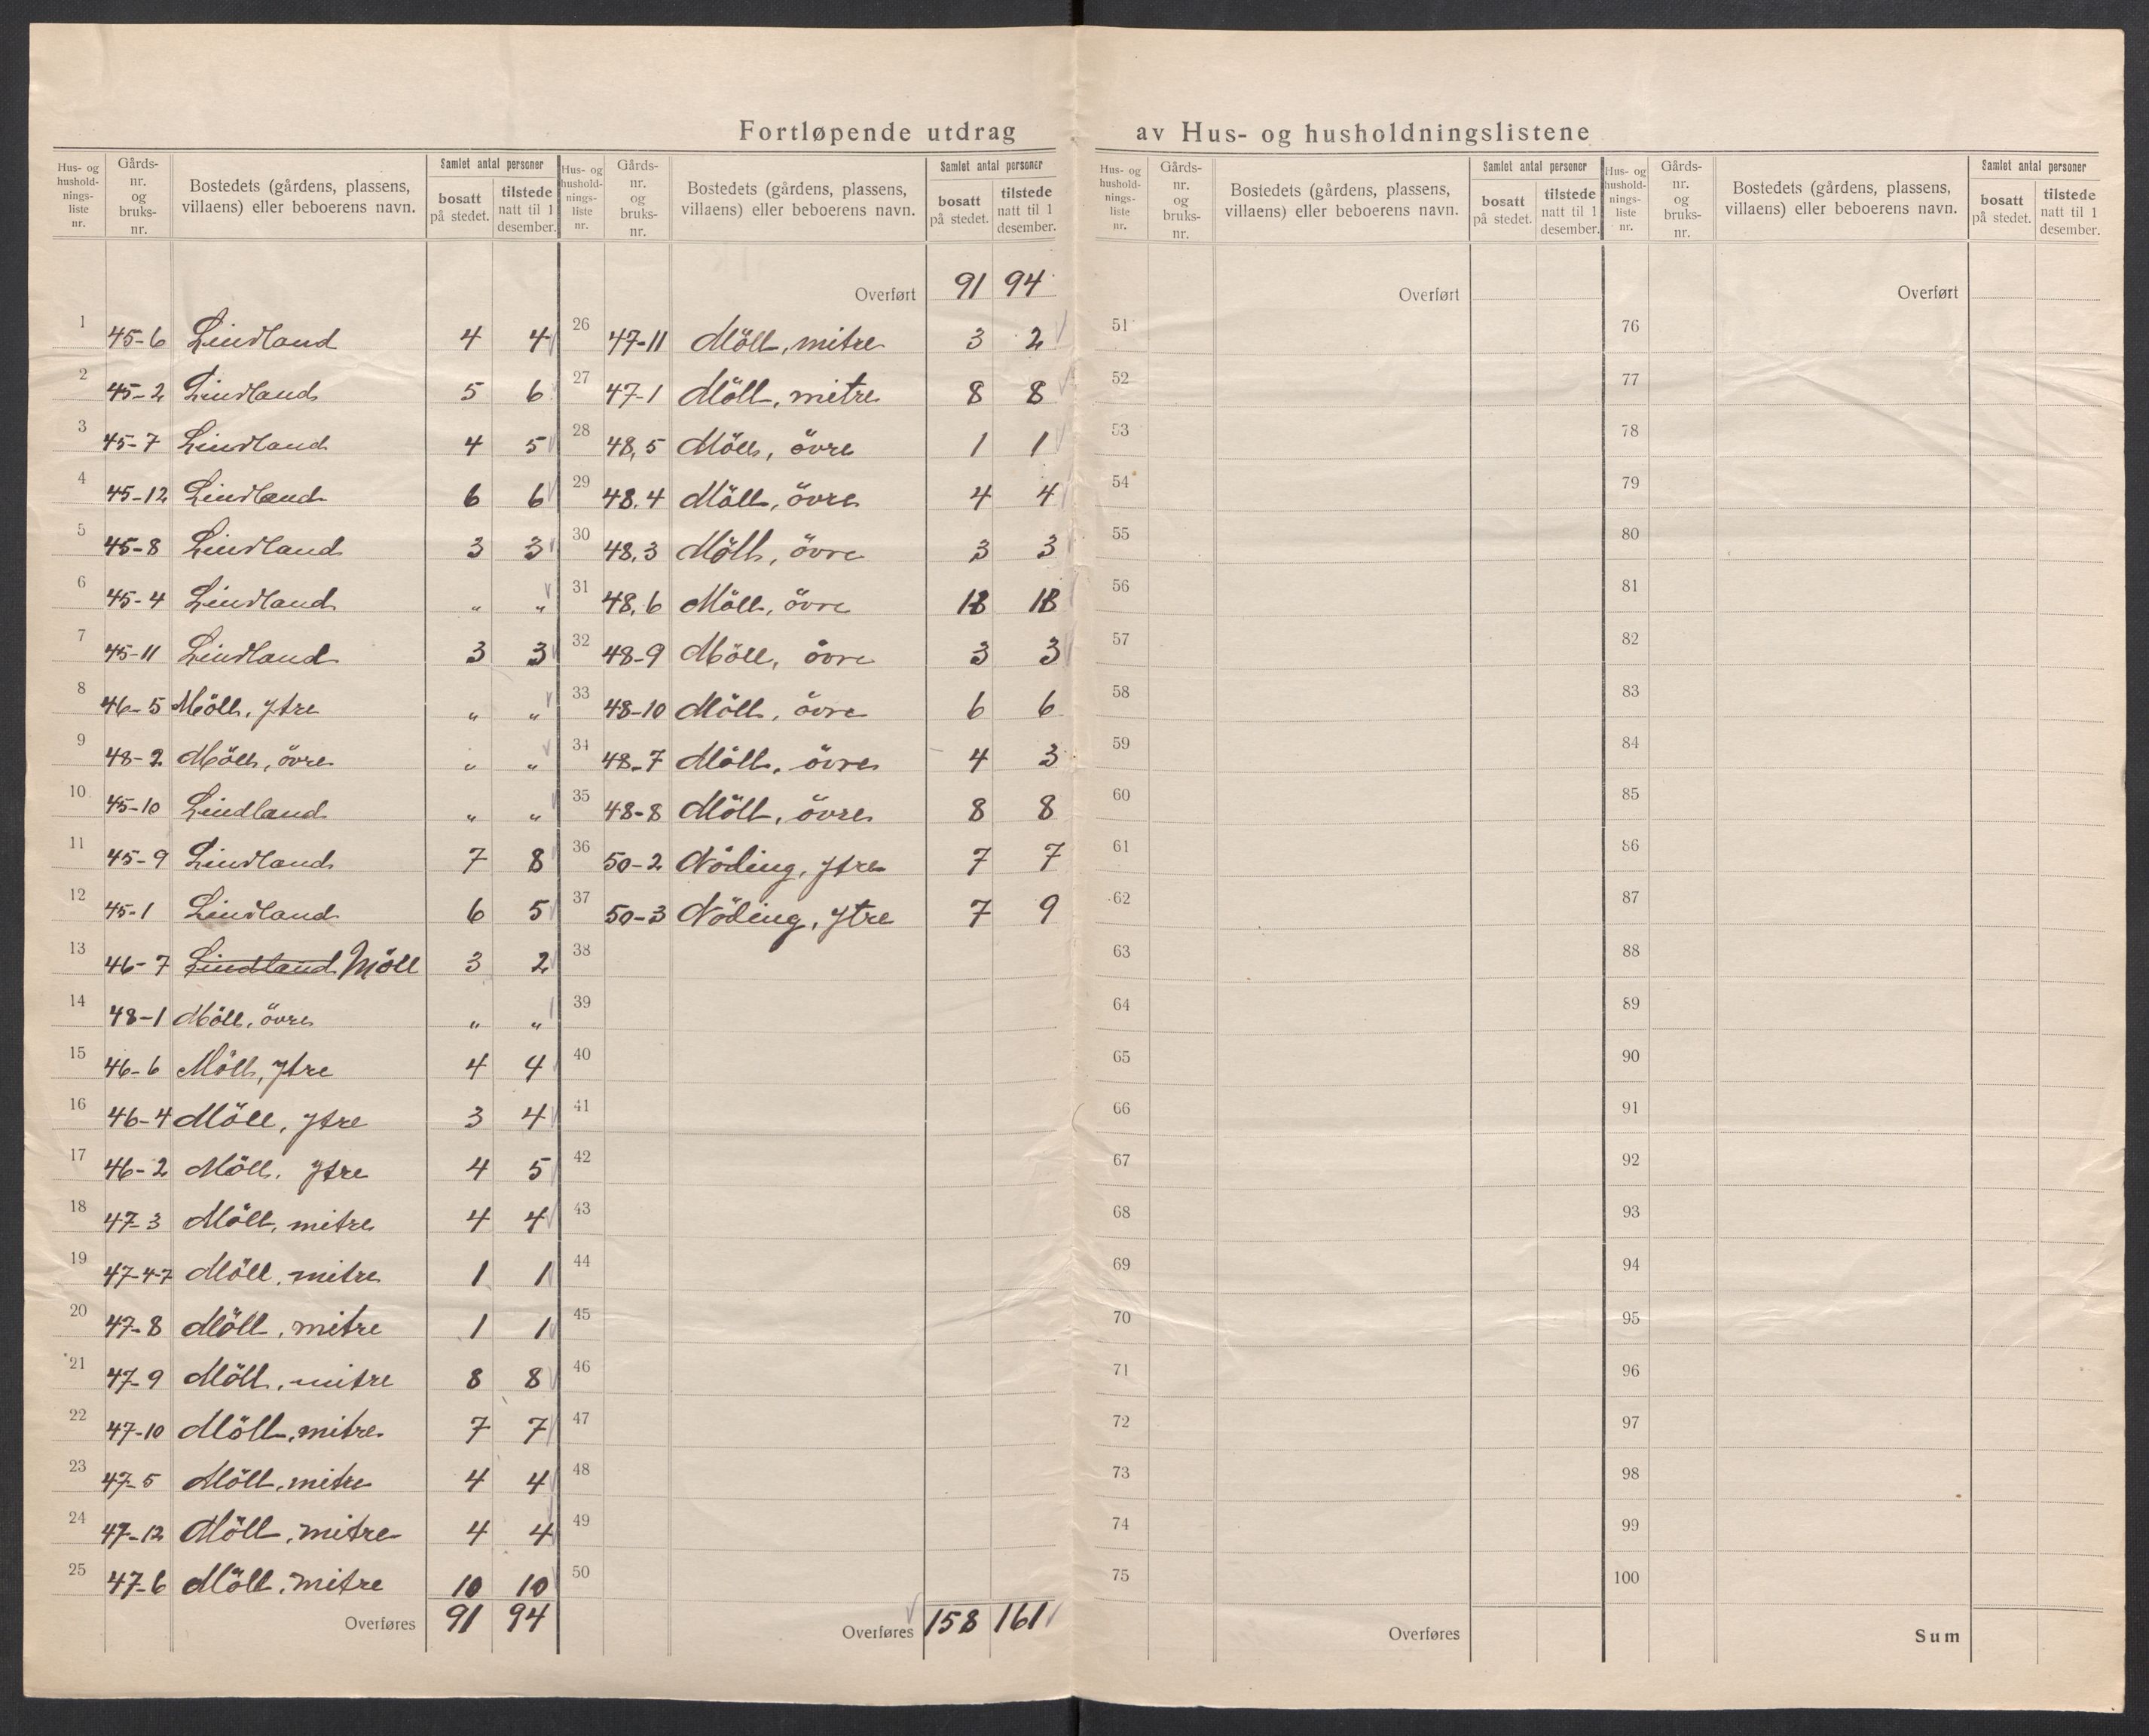 Fortløpende utdrag av Hus- og husholdningslistene
Hus- og husholdnings-liste nr. | Gårds-nr. og bruks-nr. | Bostedets (gårdens, plassens, villaens) eller beboerens navn. | Samlet antal personer | bosatt på stedet. | tilstede natt til 1 desember.
1 45-6 Lindland 4 4
2 45-2 Lindland 5 6
3 45-7 Lindland 4 5
4 45-12 Lindland 6 6
5 45-8 Lindland 3 3
6 45-4 Lindland " "
7 45-11 Lindland 3 3
8 46-5 Möll, ytre " "
9 48-2 Möll, övre " "
10 45-10 Lindland " "
11 45-9 Lindland 7 8
12 45-1 Lindland 6 5
13 46-7 Lindland Möll 3 2
14 48-1 Möll, övre " "
15 46-6 Möll, ytre 4 4
16 46-4 Möll, ytre 3 4
17 46-2 Möll, ytre 4 5
18 47-3 Möll, mitre 4 4
19 47-4-7 Möll, mitre 1 1
20 47-8 Möll, mitre 1 1
21 47-9 Möll, mitre 8 8
22 47-10 Möll, mitre 7 7
23 47-5 Möll, mitre 4 4
24 47-12 Möll, mitre 4 4
25 47-6 Möll, mitre 10 10
Overføres 91 94
Hus- og husholdnings-liste nr. | Gårds-nr. og bruks-nr. | Bostedets (gårdens, plassens, villaens) eller beboerens navn. | Samlet antal personer | bosatt på stedet. | tilstede natt til 1 desember.
Overført 91 94
26 47-11 Möll, mitre 3 2
27 47-1 Möll, mitre 8 8
28 48,5 Möll, övre 1 1
29 48.4 Möll, övre 4 4
30 48,3 Möll, övre 3 3
31 48,6 Möll, övre 13 13
32 48-9 Möll, övre 3 3
33 48-10 Möll, övre 6 6
34 48-7 Möll, övre 4 3
35 48-8 Möll, övre 8 8
36 50-2 Nöding, ytre 7 7
37 50-3 Nöding, ytre 7 9
38
39
40
41
42
43
44
45
46
47
48
49
50
Overføres 158 161
Hus- og husholdnings-liste nr. | Gårds-nr. og bruks-nr. | Bostedets (gårdens, plassens, villaens) eller beboerens navn. | Samlet antal personer | bosatt på stedet. | tilstede natt til 1 desember.
Overført
51
52
53
54
55
56
57
58
59
60
61
62
63
64
65
66
67
68
69
70
71
72
73
74
75
Overføres
Hus- og husholdnings-liste nr. | Gårds-nr. og bruks-nr. | Bostedets (gårdens, plassens, villaens) eller beboerens navn. | Samlet antal personer | bosatt på stedet. | tilstede natt til 1 desember.
Overført
76
77
78
79
80
81
82
83
84
85
86
87
88
89
90
91
92
93
94
95
96
97
98
99
100
Sum